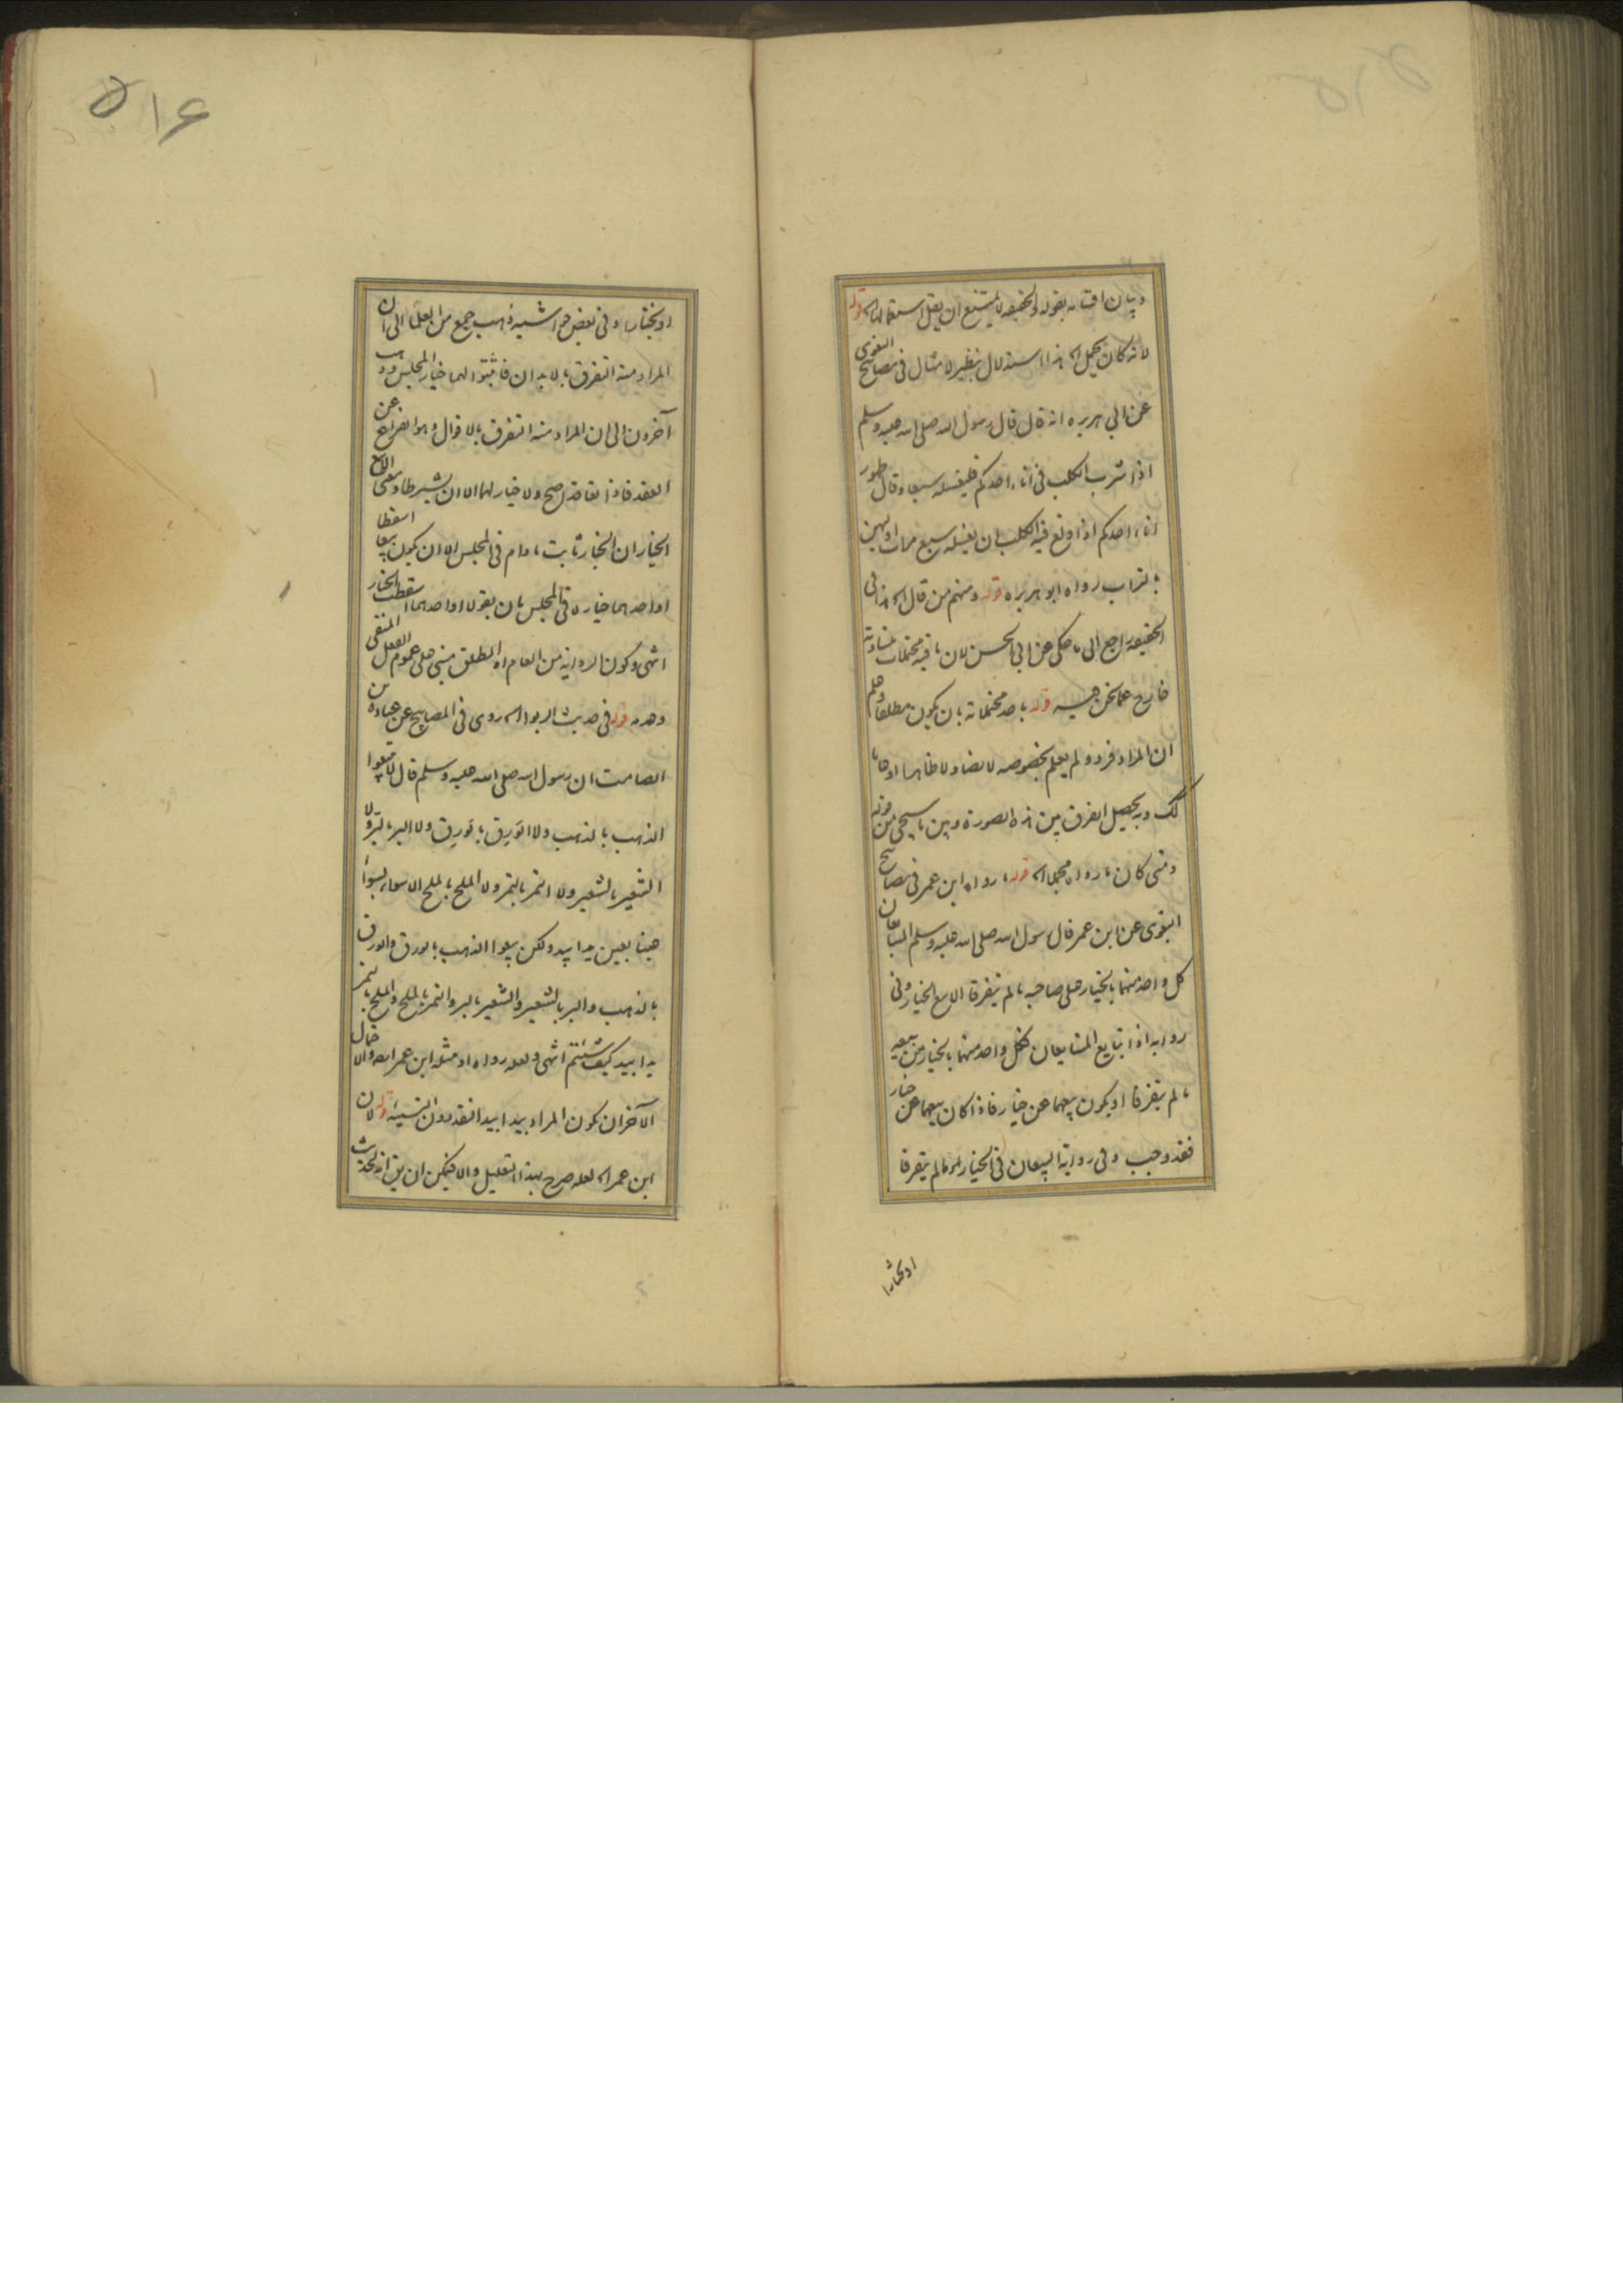 وبيان اقسامه بقوله والحقيقة لا يمتنع ان يقل استعمالها اه قوله
لانه كان يحمل اه هذا استدلال بنظير لا مثال في مصابيح البغوي
عن ابي هريره انه قال قال رسول الله صلى الله عليه وسلم
اذا شرب الكلب في اناء احدكم فليغسله سبعا وقال طهور
اناء احدكم اذا ولغ فيه الكلب ان يغسله سبع مرات اوليهن
بالتراب رواه ابو هريره قوله ومنهم من قال اه هذا في
الحقيقة راجع الى ما حكى عن ابي الحسن لان باقيه محتملات متساوية
خارج عما نحن فيه قوله باحد محتملاته بان يكون مطلقا وعلم
ان المراد فرد ولم يعلم بخصوصه لا نصا ولا ظاهرا او عاما
كك وبه يحصل الفرق بين هذه الصورة وبين ما سيجئ من قوله
ومتى كان ما رواه مجملا اه قوله ما رواه ابن عمر في مصابيح
البغوي عن ابن عمر قال رسول الله صلى الله عليه وسلم المتبايعان
كل واحد منهما بالخيار على صاحبه ما لم يتفرقا الا بيع الخيار وفي
رواية اذا تبايع المتبايعان فكل واحد منهما بالخيار من بيعه
ما لم يتفرقا او يكون بيعهما عن خيار فاذا كان بيعهما عن خيار
فقد وجب وفي رواية البيعان في الخيار ما لم يتفرقا
او يختارا
٥١۶
او يختارا وفي بعض حواشيه ذهب جمع من العلما الى ان
المراد منه التفرق بالابدان فاثبتوا لهما خيار المجلس وذهب
آخرون الى ان المراد منه التفرق بالاقوال وهو الفراغ عن
العقد فاذا تعاقدا صح ولا خيار لهما الا ان يشترطا ومعنى الا بيع
الخيار ان الخيار ثابت ما دام في المجلس الا ان يكون بيعا اسقطا
او احدهما خياره في المجلس بان يقولا او احدهما اسقطت الخيار
انتهى وكون الرواية من العام او المطلق مبني على عموم الفعل المنفي
وعدمه قوله في حديث الربوا اه روى في المصابيح عن عبادة بن
الصامت ان رسول الله صلى الله عليه وسلم قال لا تبيعوا
الذهب بالذهب ولا الورق بالورق ولا البر بالبر ولا
الشعير بالشعير ولا التمر بالتمر ولا الملح بالملح الا سواء بسواء
عينا بعين يدا بيد ولكن بيعوا الذهب بالورق والورق
بالذهب والبر بالشعير والشعير بالبر والتمر بالملح والملح بالتمر
يدا بيد كيف شئتم انتهى ولعله رواه او مثله ابن عمر ايضه والا
الآخر ان كون المراد بيدا بيد النقد دون النسيئه قوله لان
ابن عمر اه لعله صرح بهذا التعليل والا فيمكن ان يق انه لحديث